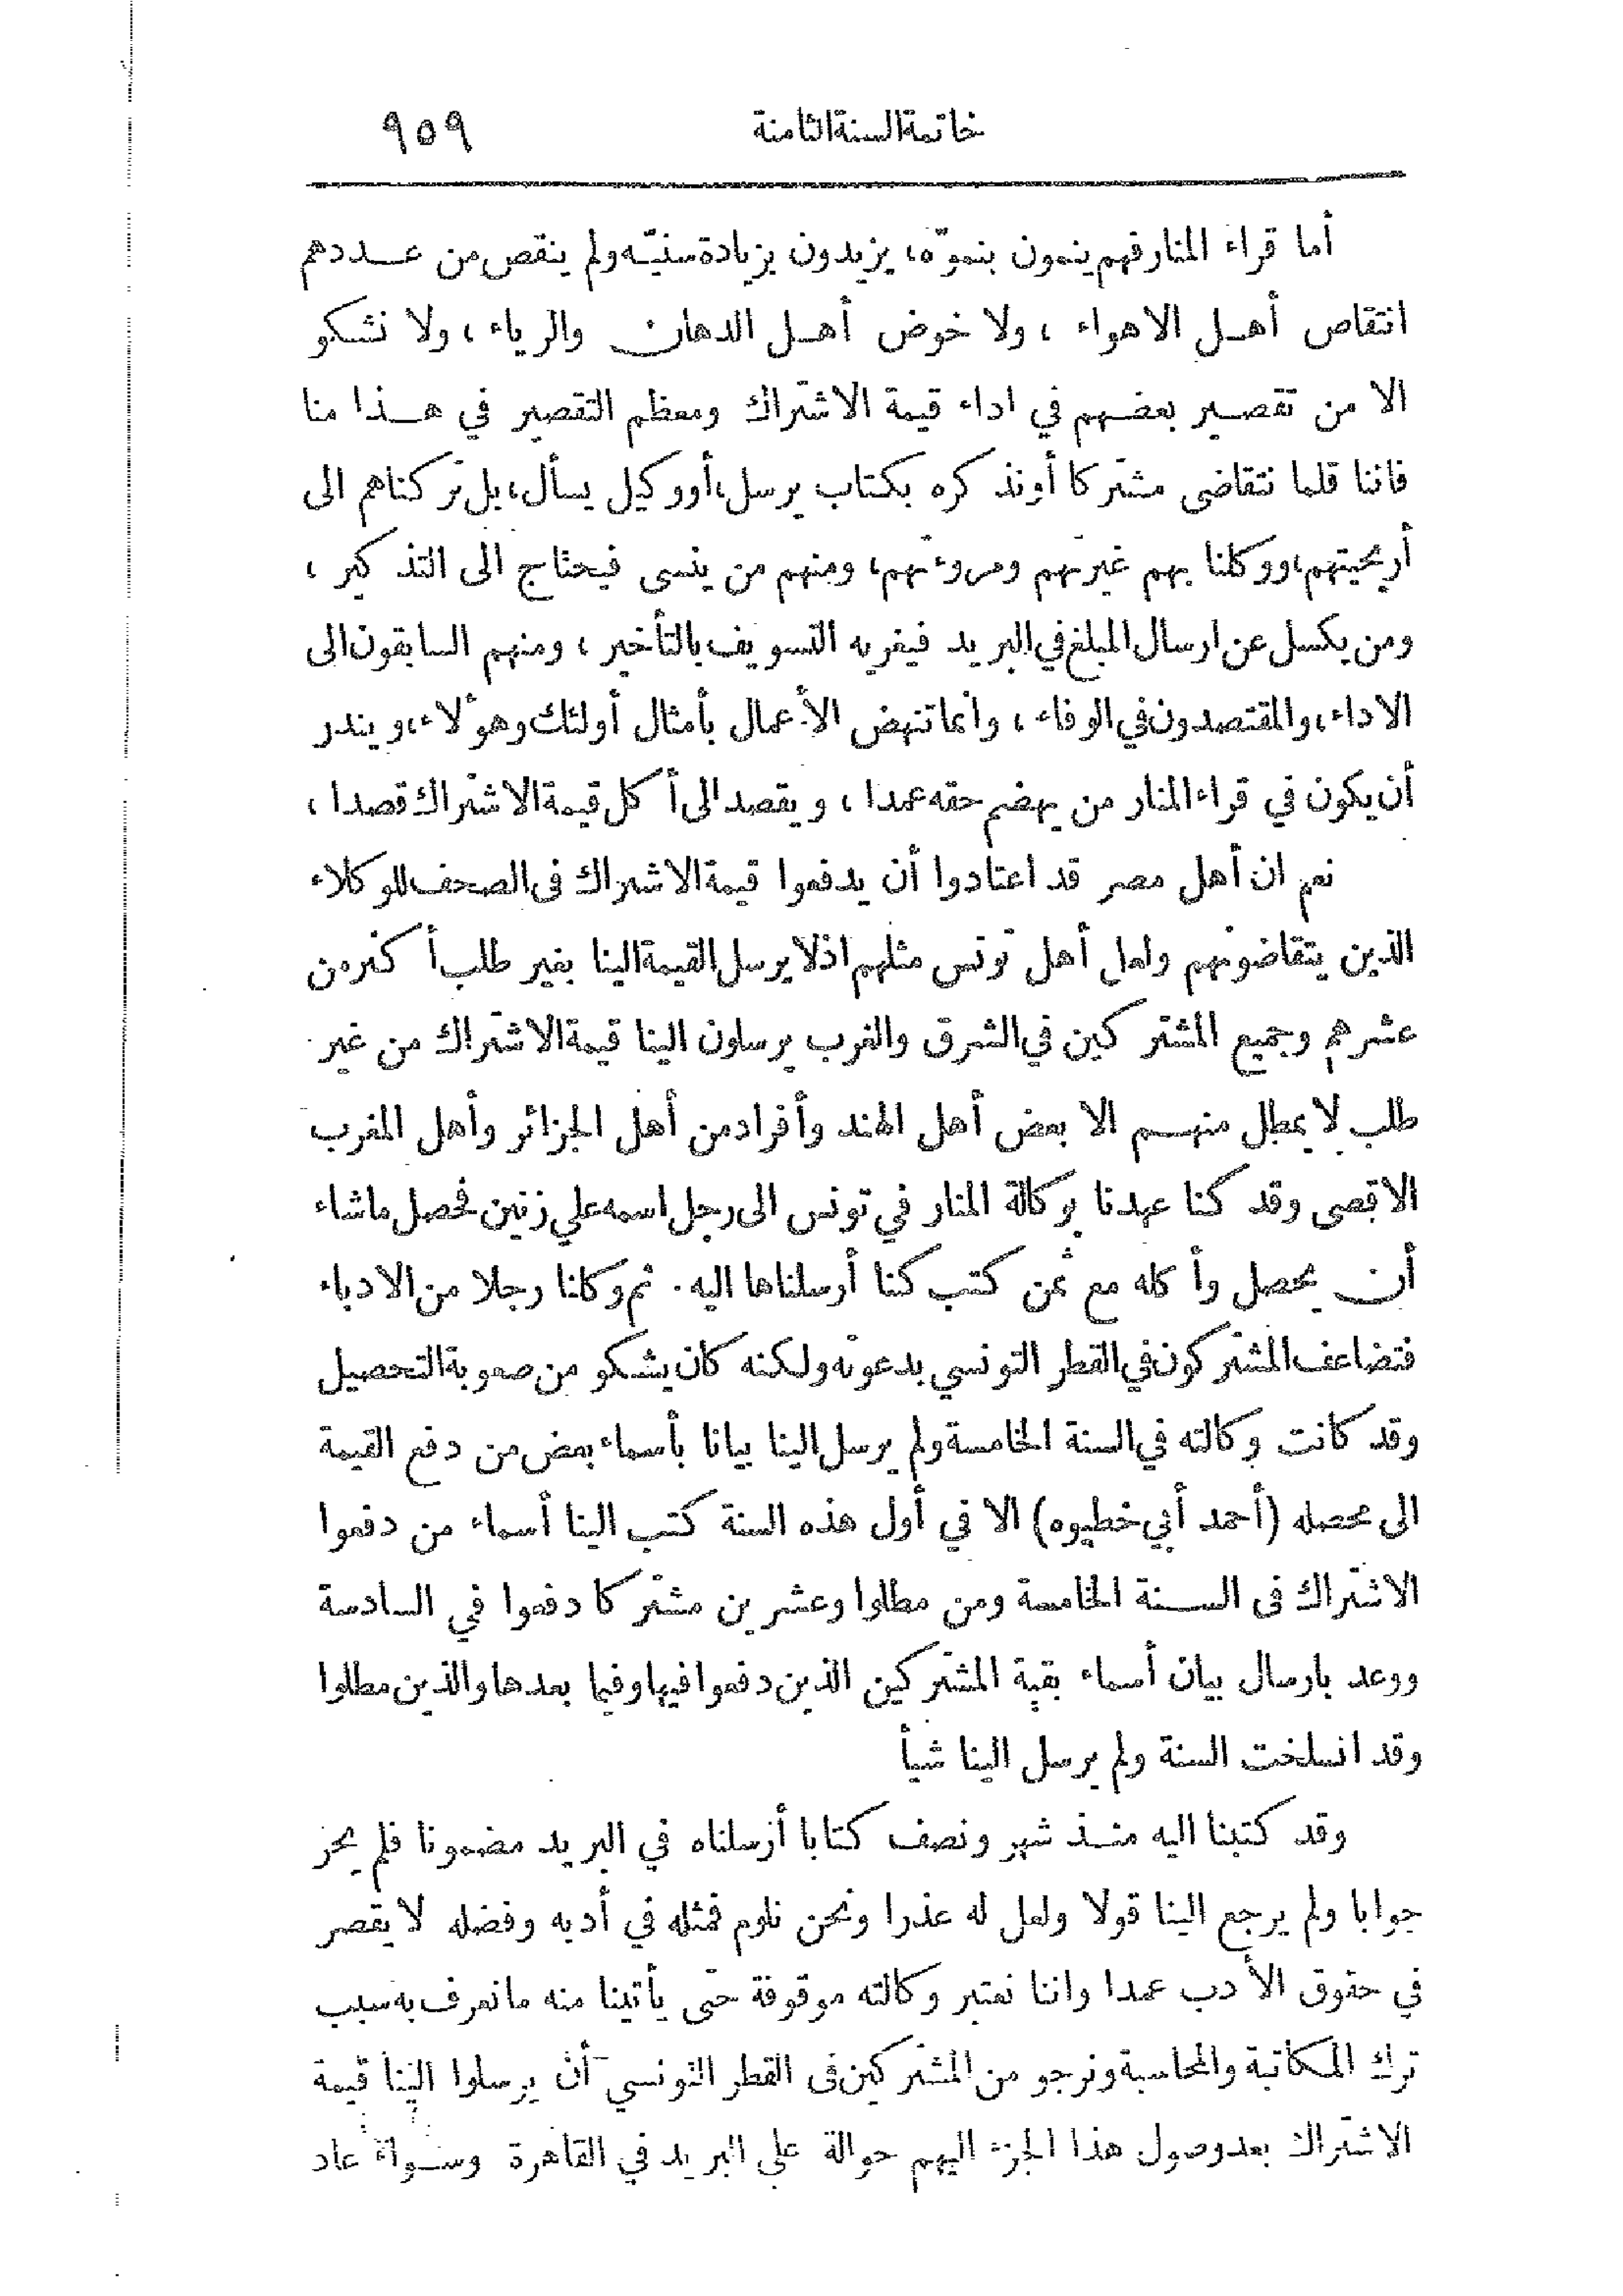 خاتمة السنة الثامنة ٩٥٩
أما قراء المنار فهم ينمون بنموّه، يزيدون بزيادة سنيّه ولم ينقص من عددهم
انتقاص أهل الاهواء ، ولا خوض أهل الدهان والرياء ، ولا نشكو
الا من تقصير بعضهم في اداء قيمة الاشتراك ومعظم التقصير في هذا منا
فاننا قلما نتقاضى مشتركا أو نذكره بكتاب يرسل، أو وكيل يسأل، بل تركناهم الى
أريحيتهم، ووكلنا بهم غيرتهم ومروءتهم، ومنهم من ينسى فيحتاج الى التذكير ،
ومن يكسل عن ارسال المبلغ في البريد فيغريه التسويف بالتأخير ، ومنهم السابقون الى
الاداء، والمقتصدون في الوفاء ، وانما تنهض الأعمال بأمثال أولئك وهؤلاء، ويندر
أن يكون في قراء المنار من يهضم حقه عمدا ، ويقصد الى أكل قيمة الاشتراك قصدا ،
نعم ان أهل مصر قد اعتادوا أن يدفعوا قيمة الاشتراك في الصحف للوكلاء
الذين يتقاضونهم ولعل أهل تونس مثلهم اذ لا يرسل القيمة الينا بغير طلب أكثر من
عشرهم وجميع المشتركين في الشرق والغرب يرسلون الينا قيمة الاشتراك من غير
طلب لا يمطل منهم الا بعض أهل الهند وأفراد من أهل الجزائر وأهل المغرب
الاقصى وقد كنا عهدنا بوكالة المنار في تونس الى رجل اسمه علي زنين فحصل ما شاء
أن يحصل وأكله مع ثمن كتب كنا أرسلناها اليه . ثم وكلنا رجلا من الادباء
فتضاعف المشتركون في القطر التونسي بدعوته ولكنه كان يشكو من صعوبة التحصيل
وقد كانت وكالته في السنة الخامسة ولم يرسل الينا بيانا بأسماء بعض من دفع القيمة
الى محصله (أحمد أبي خطيوه) الا في أول هذه السنة كتب الينا أسماء من دفعوا
الاشتراك في السنة الخامسة ومن مطلوا وعشرين مشتركا دفعوا في السادسة
ووعد بارسال بيان أسماء بقية المشتركين الذين دفعوا فيها وفيما بعدها والذين مطلوا
وقد انسلخت السنة ولم يرسل الينا شيأ
وقد كتبنا اليه منذ شهر ونصف كتابا أرسلناه في البريد مضمونا فلم يحر
جوابا ولم يرجع الينا قولا ولعل له عذرا ونحن نلوم فمثله في أدبه وفضله لا يقصر
في حقوق الأدب عمدا واننا نعتبر وكالته موقوفة حتى يأتينا منه ما نعرف به سبب
ترك المكاتبة والمحاسبة ونرجو من المشتركين في القطر التونسي أن يرسلوا الينا قيمة
الاشتراك بعد وصول هذا الجزء اليهم حوالة على البريد في القاهرة وسواء عاد